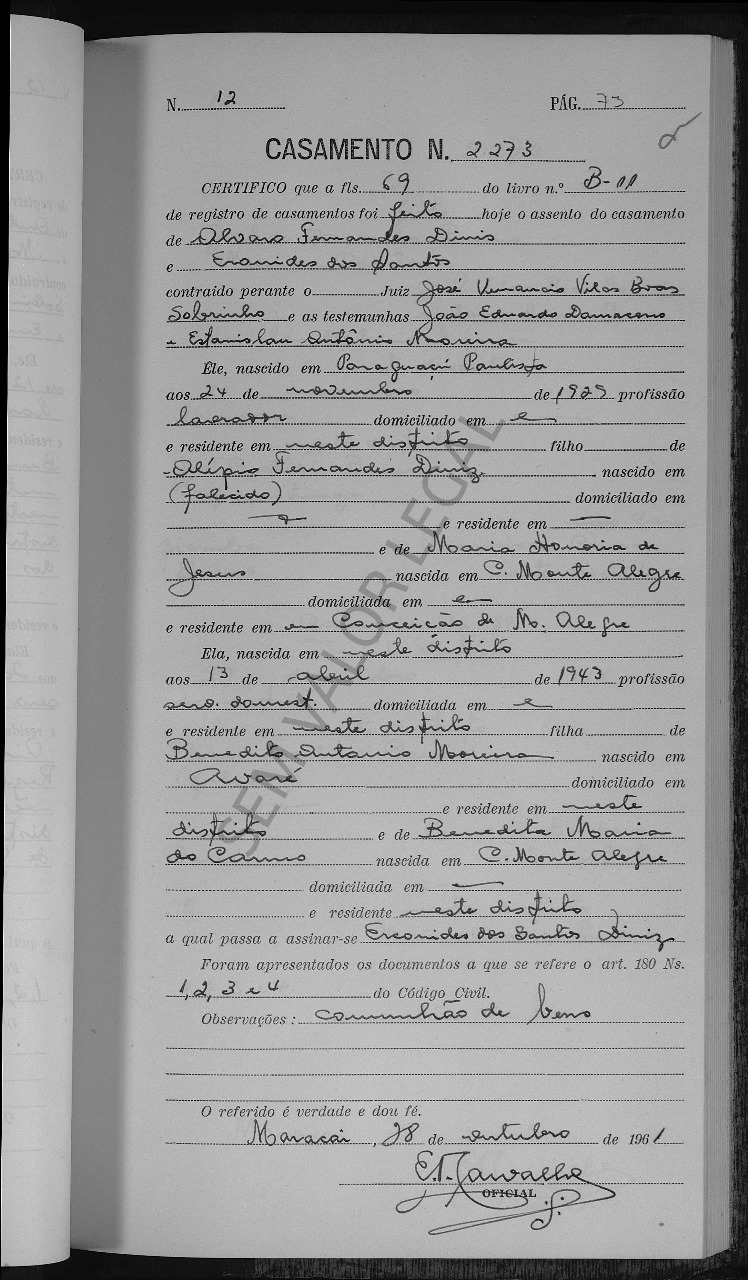 N. 12 PÁG. 73
CASAMENTO N. 2273
CERTIFICO que a fls. 69 do livro n.º B-11
de registro de casamentos foi feito hoje o assento do casamento
de Alvaro Fernandes Dinis
e Eronides dos Santos
contraido perante o Juiz José Venancio Vilas Boas
Sobrinho e as testemunhas João Eduardo Damaceno
e Estanislau Antônio Moreira
Êle, nascido em Paraguaçú Paulista
aos 24 de novembro de 1925 profissão
lavrador domiciliado em e
e residente em neste distrito filho de
Alípio Fernandes Diniz nascido em
(falecido) domiciliado em
e residente em
e de Maria Honoria de
Jesus nascida em C. Monte Alegre
domiciliada em e
e residente em em Conceição de M. Alegre
Ela, nascida em neste distrito
aos 13 de abril de 1943 profissão
serv. domest. domiciliada em e
e residente em neste distrito filha de
Benedito Antonio Moreira nascido em
Avaré domiciliado em
e residente em neste
distrito e de Benedita Maria
do Carmo nascida em C. Monte Alegre
domiciliada em
e residente neste distrito
a qual passa a assinar-se Eronides dos Santos Diniz
Foram apresentados os documentos a que se refere o art. 180 Ns.
1, 2, 3 e 4 do Código Civil.
Observações: comunhão de bens
O referido é verdade e dou fé.
Maracaí, 28 de outubro de 1961
OFICIAL
SEM VALOR LEGAL